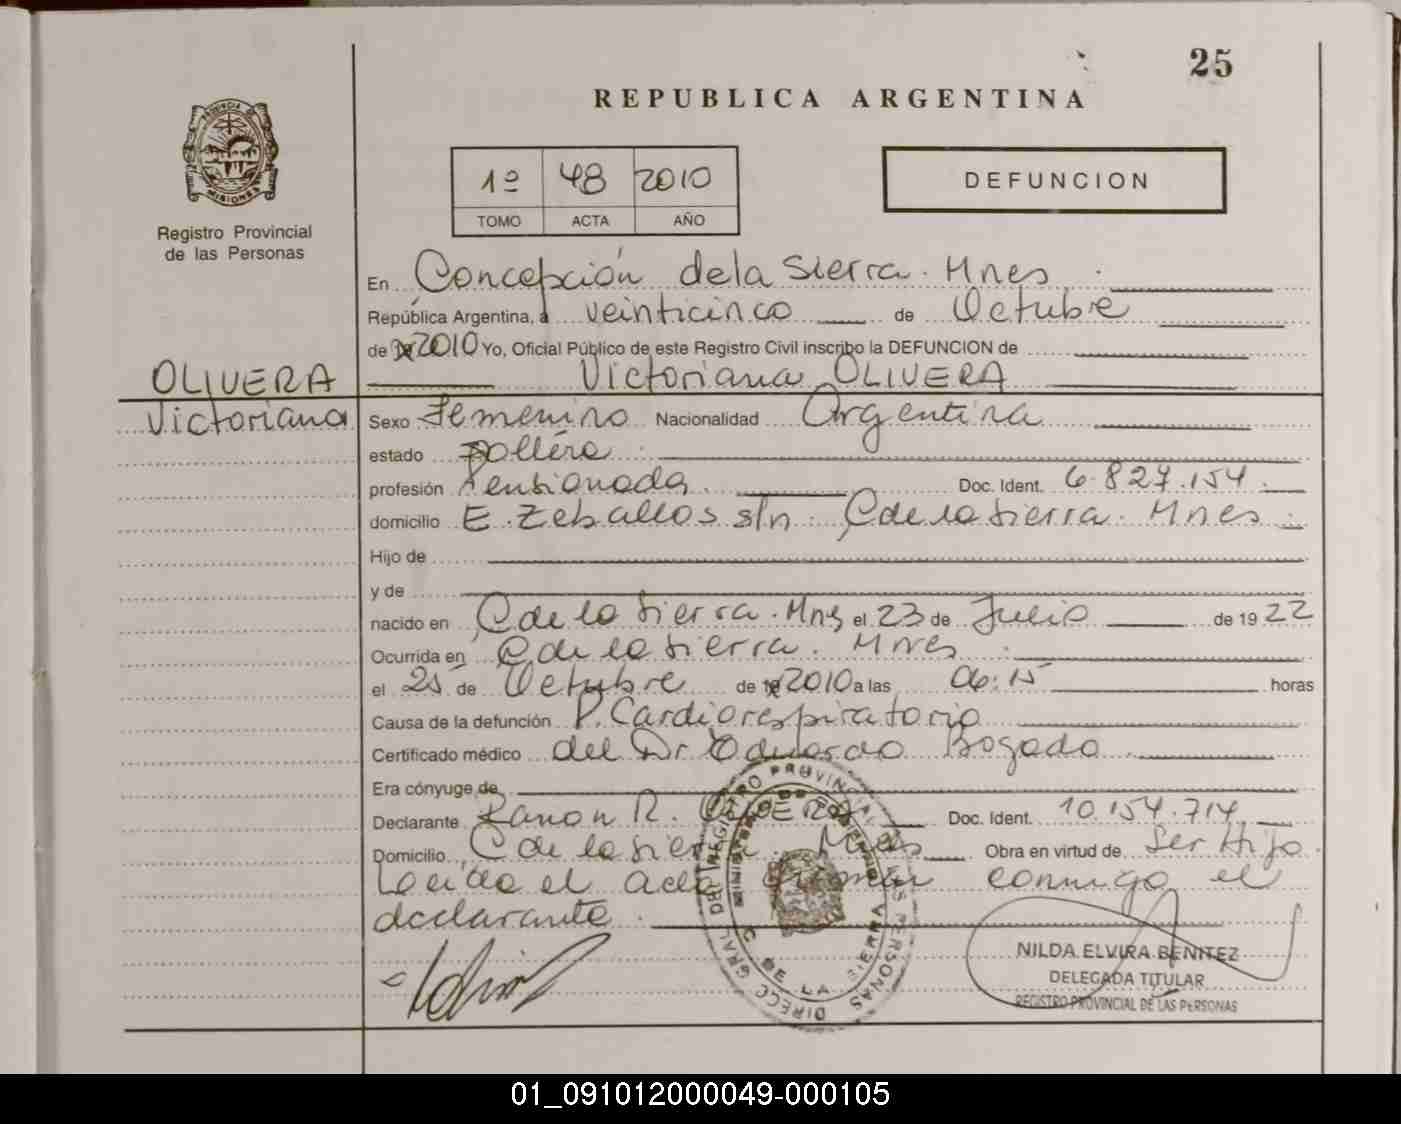 25
REPUBLICA ARGENTINA
PROVINCIA DE
MISIONES
Registro Provincial
de las Personas
1º 48 2010
TOMO ACTA AÑO
DEFUNCION
En Concepción de la Sierra. Mnes
República Argentina, a veinticinco de Octubre
de 2010 Yo, Oficial Público de este Registro Civil inscribo la DEFUNCION de
OLIVERA
Victoriana
Victoriana OLIVERA
Sexo Femenino Nacionalidad Argentina
estado Soltéra
profesión Pensionada. Doc. Ident. 6.827.154.
domicilio E. Zeballos s/n. C de la Sierra. Mnes
Hijo de
y de
nacido en C de la Sierra. Mnes el 23 de Julio de 1922
Ocurrida en C de la Sierra. Mnes
el 25 de Octubre de 2010 a las 06:15 horas
Causa de la defunción P. Cardiorespiratorio
Certificado médico del Dr Eduardo Bogado
Era cónyuge de
Declarante Ramon R. OLIVERA Doc. Ident. 10.154.714.
Domicilio C de la Sierra. Mnes Obra en virtud de Ser Hijo.
Leida el acta firman conmigo el
declarante.
DIRECC GRAL DEL REGISTRO PROVINCIAL DE LAS PERSONAS
MINISTERIO DE GOBIERNO
C DE LA SIERRA
NILDA ELVIRA BENITEZ
DELEGADA TITULAR
REGISTRO PROVINCIAL DE LAS PERSONAS
01_091012000049-000105